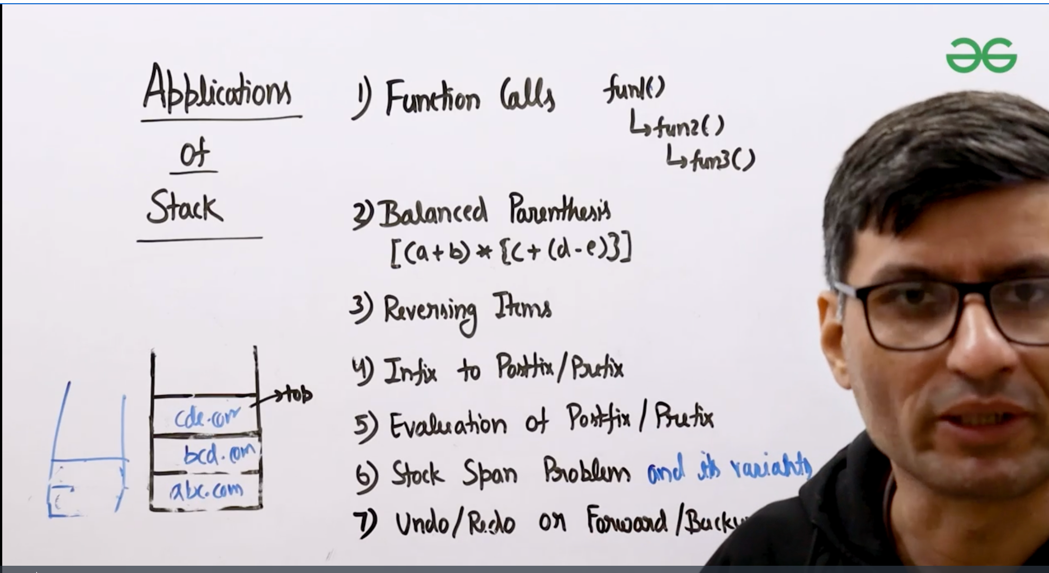 Applications
of
Stack
1) Function Calls
fun1()
↳fun2()
↳fun3()
2) Balanced Parenthesis
[(a+b) * {c + (d-e)}]
3) Reversing Items
4) Infix to Postfix/Prefix
5) Evaluation of Postfix / Prefix
6) Stock Span Problem and its variants
7) Undo/Redo or Forward/Backw
→top
cde.com
bcd.com
abc.com